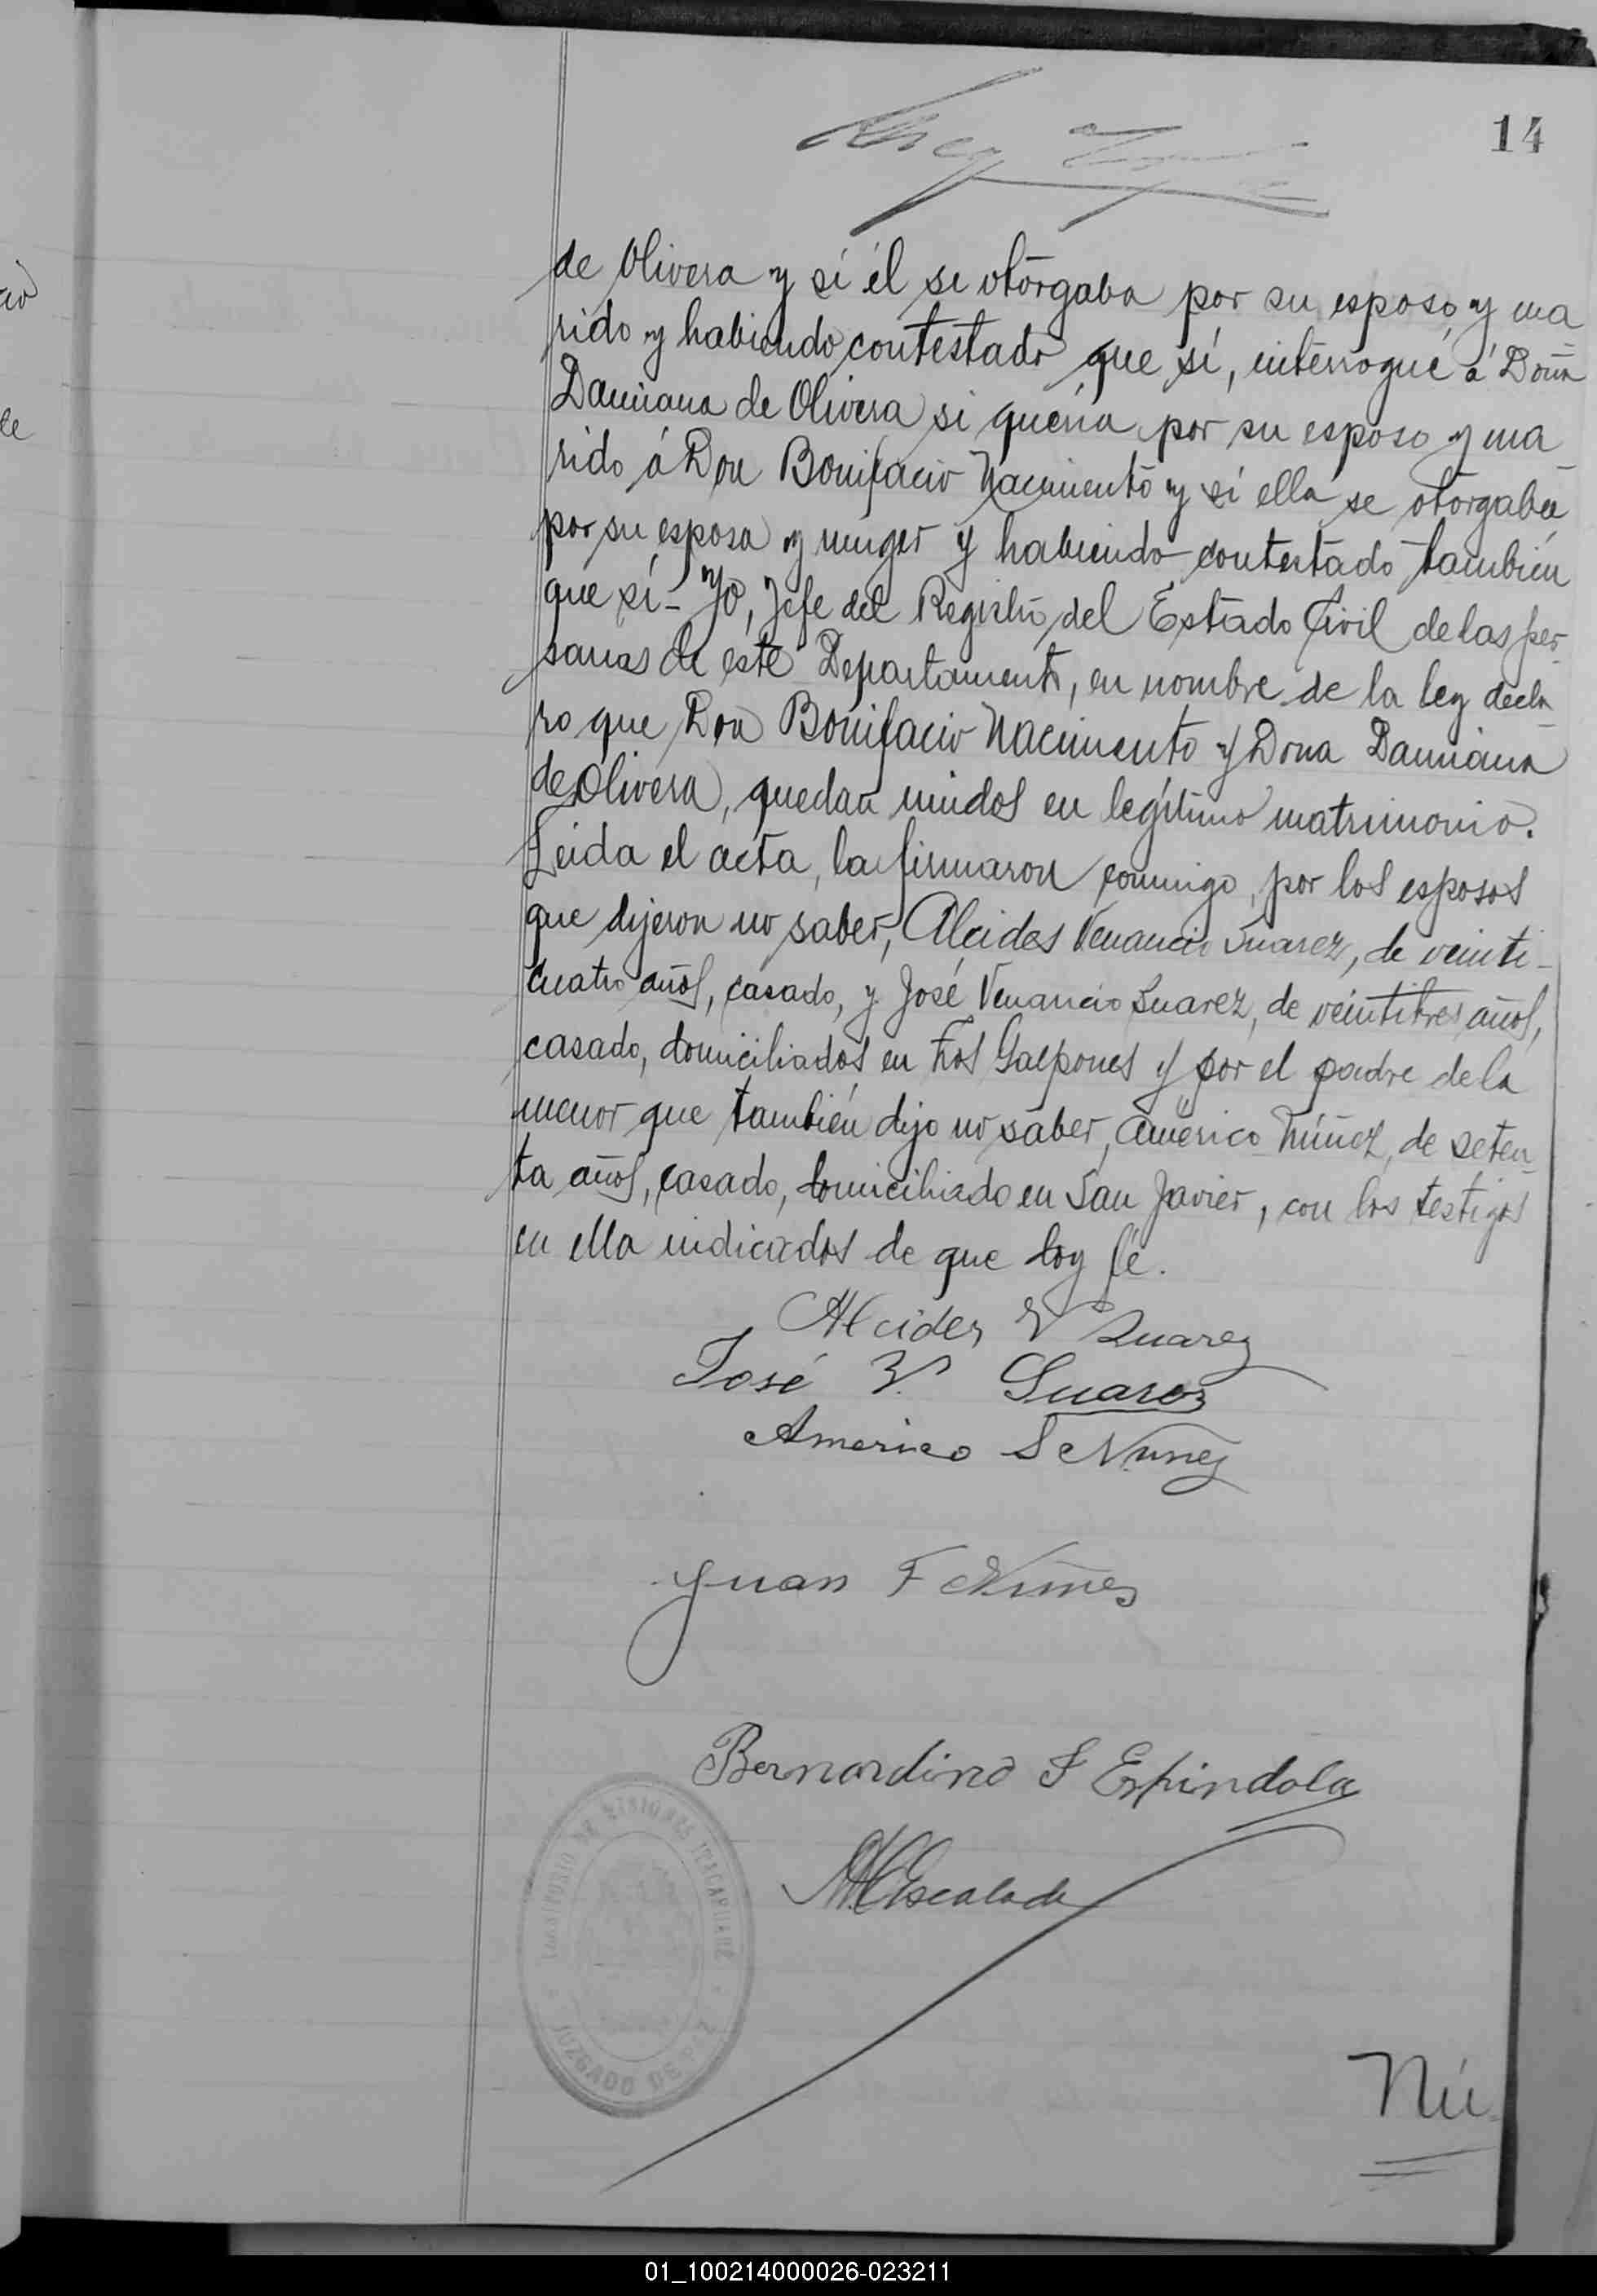 14
de Olivera y si él se otorgaba por su esposo y ma
rido y habiendo contestado que sí, interrogué á Doña
Damiana de Olivera si quería por su esposo y ma
rido á Don Bonifacio Nacimiento y si ella se otorgaba
por su esposa y muger y habiendo contestado también
que sí - Yo, Jefe del Registro del Estado Civil de las per
sonas de este Departamento, en nombre de la ley decla
ro que Don Bonifacio Nacimiento y Dona Damiana
de Olivera, quedan unidos en legítimo matrimonio.
Leida el acta, la firmaron conmigo, por los esposos
que dijeron no saber, Alcides Venancio Suarez, de veinti-
cuatro años, casado, y José Venancio Suarez, de veintitres años,
casado, domiciliados en Los Galpones y por el padre de la
menor que también dijo no saber, Américo Núñez, de seten
ta años, casado, domiciliado en San Javier, con los testigos
en ella indicados de que doy fé.
Alcides V Suarez
José V. Suarez
Americo S Nunez
Juan F Nuñes
Bernardino F Espindola
Escalada
TERRITORIO DE MISIONES ITACARUARÉ
JUZGADO DE PAZ
Nú
01_100214000026-023211